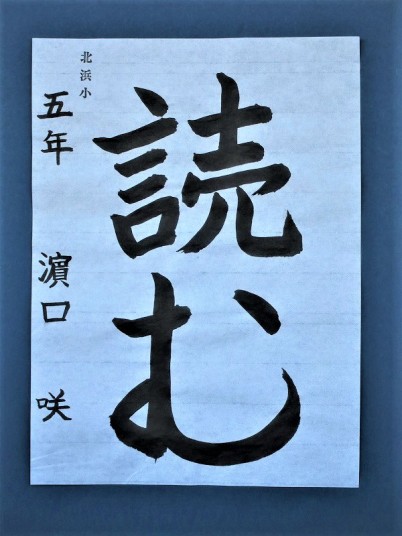 読む
北浜小
五年 濵口 咲